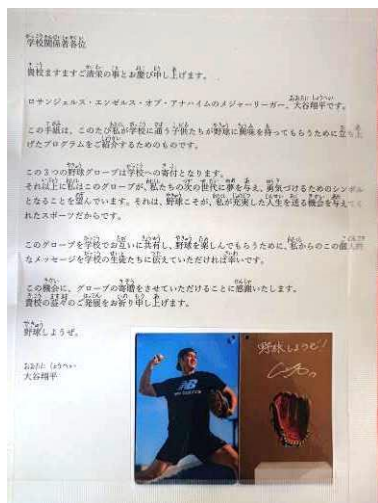 学校関係者各位
貴校ますますご清栄の事とお慶び申し上げます。
ロサンジェルス・エンゼルス・オブ・アナハイムのメジャーリーガー、大谷翔平です。
この手紙は、このたび私が学校に通う子供たちが野球に興味を持ってもらうために立ち上
げたプログラムをご紹介するためのものです。
この3つの野球グローブは学校への寄付となります。
それ以上に私はこのグローブが、私たちの次の世代に夢を与え、勇気づけるためのシンボル
となることを望んでいます。それは、野球こそが、私が充実した人生を送る機会を与えてく
れたスポーツだからです。
このグローブを学校でお互いに共有し、野球を楽しんでもらうために、私からのこの個人的
なメッセージを学校の生徒たちに伝えていただければ幸いです。
この機会に、グローブの寄贈をさせていただけることに感謝いたします。
貴校の益々のご発展をお祈り申し上げます。
やきゅう
野球しようぜ。
おおたに しょうへい
大谷翔平
野球しようぜ!